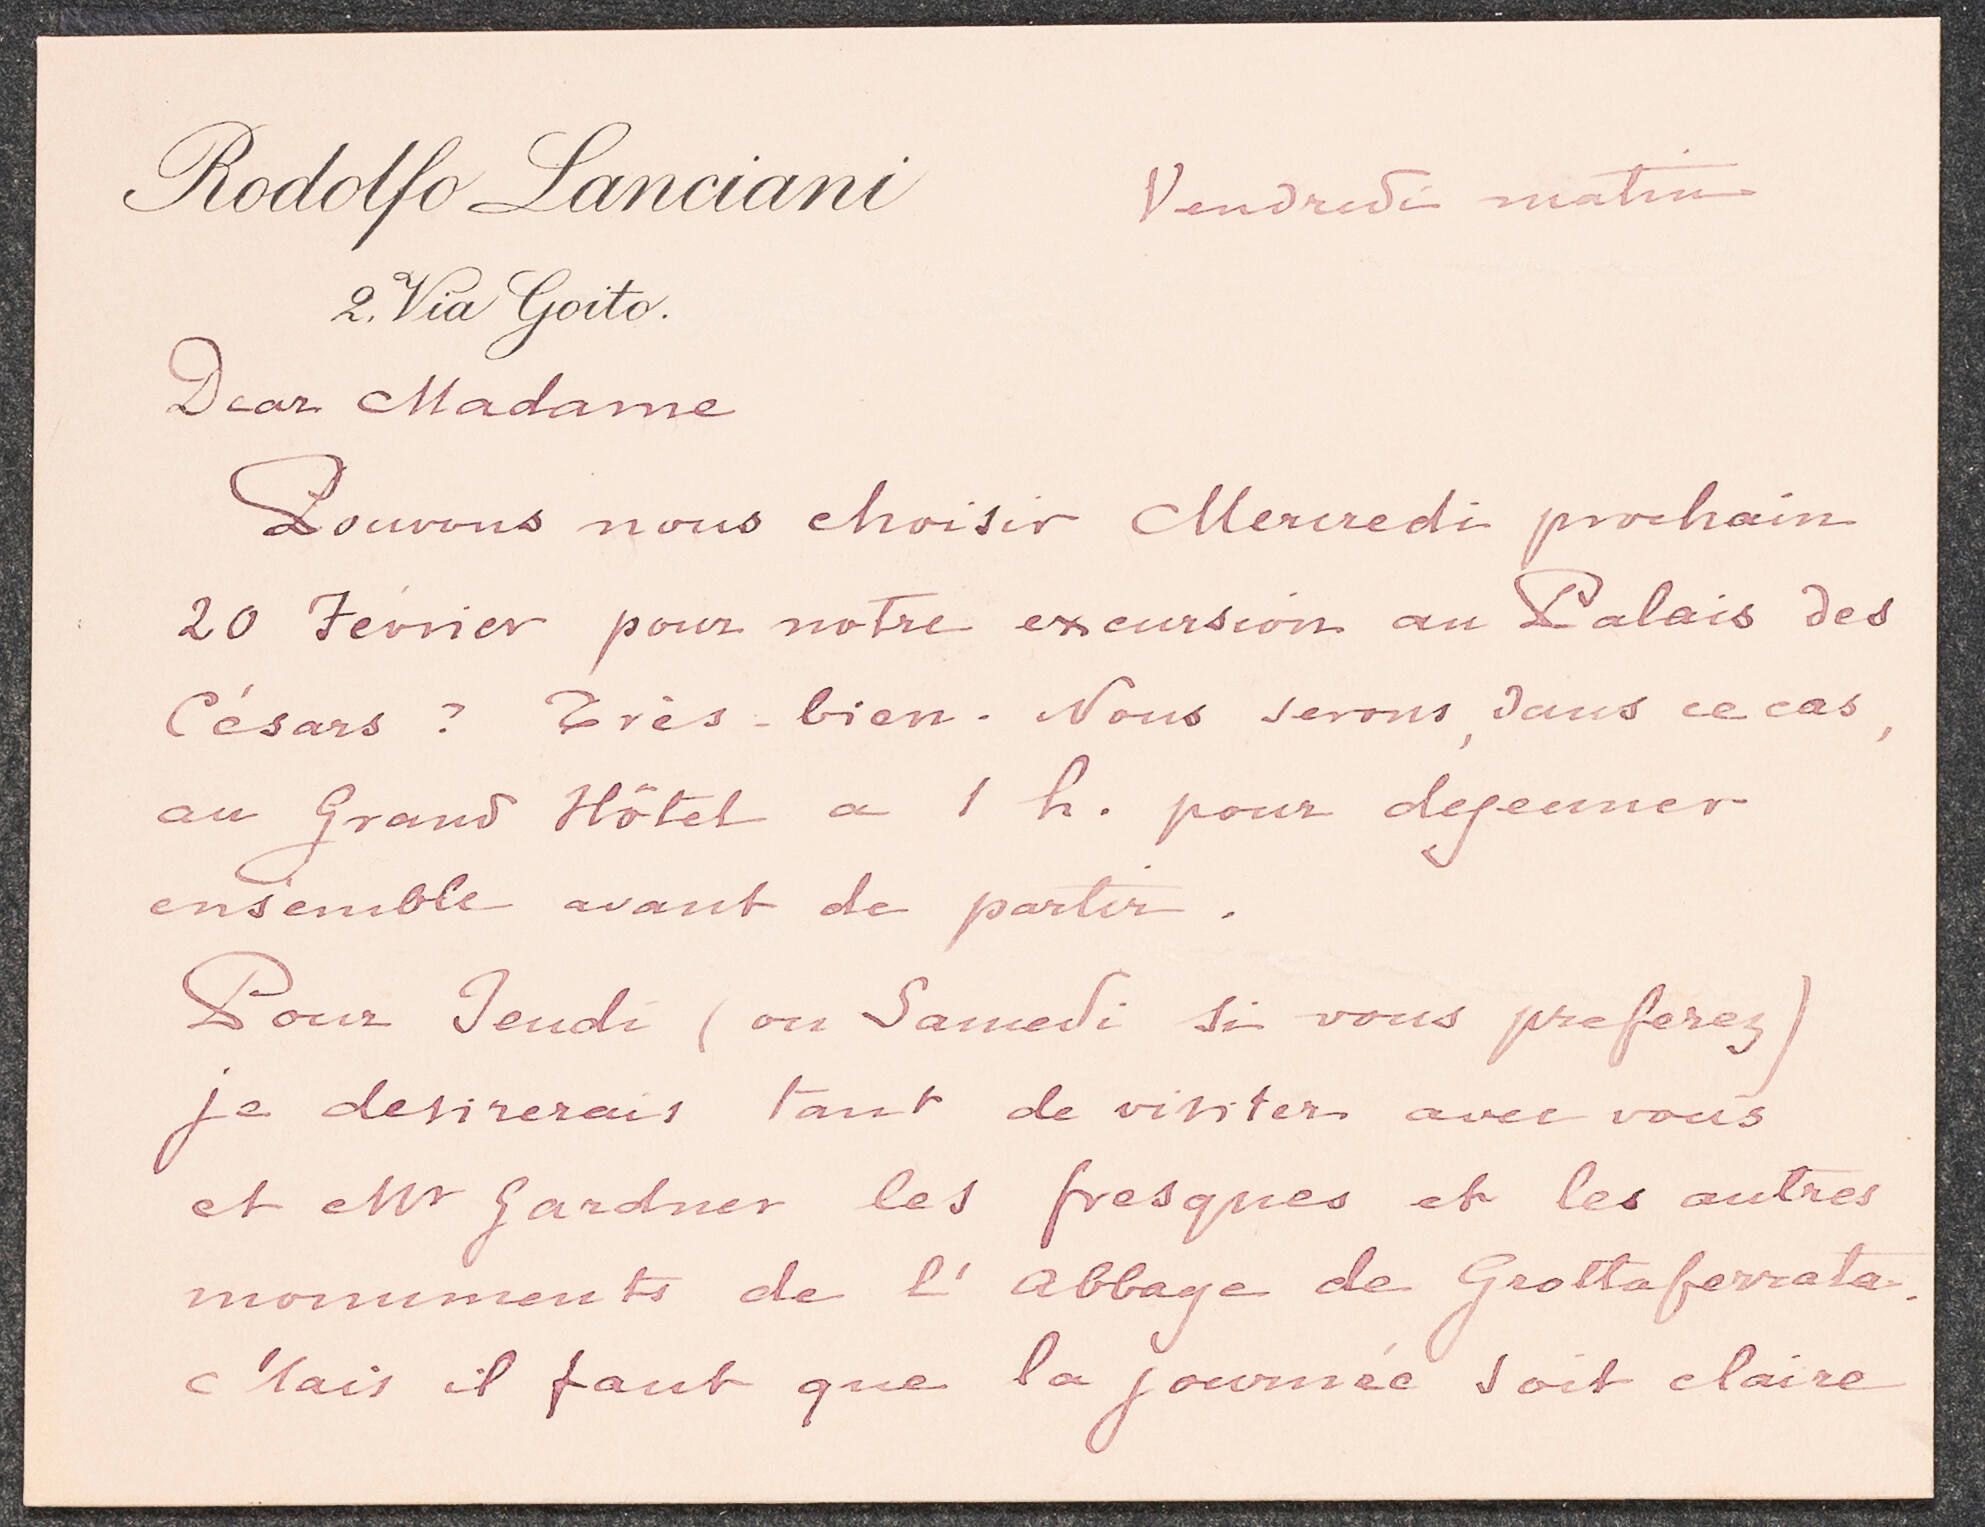 Rodolfo Lanciani
Vendredi matin
2. Via Goito.
Dear Madame
Pouvons nous choisir Mercredi prochain
20 Fevrier pour notre excursion au Palais des
Césars ? Très-bien. Nous serons, dans ce cas,
au Grand Hôtel a 1 h. pour dejeuner
ensemble avant de partir.
Pour Jeudi (ou Samedi si vous preferez)
je desirerais tant de visiter avec vous
et Mr Gardner les fresques et les autres
monuments de l'Abbaye de Grottaferrata.
Mais il faut que la journée soit claire